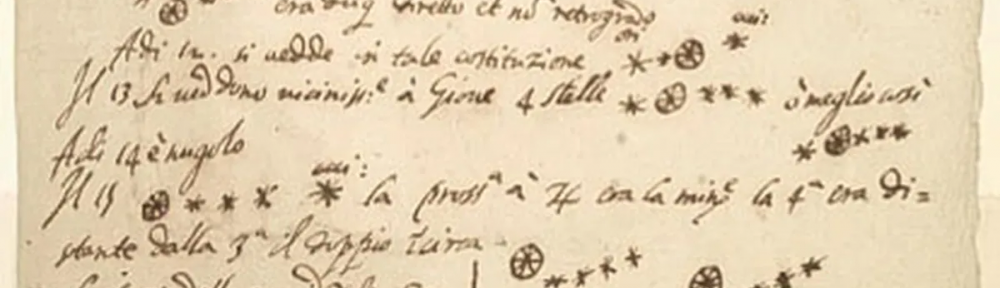 era dunq diretto et nõ retrogrado
Adi 12. si vedde in tale costituzione ori: occ:
Il 13 si veddono vicinissᵉ à Giove 4 stelle ò meglio così
Adi 14 è nugolo
Il 15 occ: la prossª à ♃ era la minᵉ la 4ª era di=
stante dalla 3ª il doppio circa